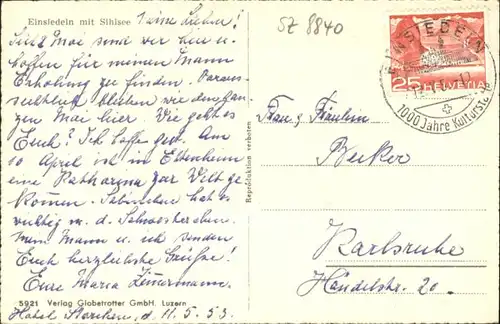 Einsiedeln mit Sihlsee
Meine Lieben!
SZ 8840
Seit 2 Mai sind wir hier u.
hoffen für meinen Mann
Erholung zu finden. Voraus-
sichtlich bleiben wir den gan-
zen Mai hier. Wie geht es
Euch? Ich hoffe gut. Am
10 April ist in Ettenheim
eine Katharina zur Welt ge
komen. Sabinchen hat es
wichtig m. d. Schwesterchen.
Mein Mann u. ich senden
Euch herzlichste Grüße!
Eure Maria Zimmermann.
5921 Verlag Globetrotter GmbH. Luzern
Hotel Storchen, d. 11. 5. 53.
Reproduktion verboten
EINSIEDELN
1000 Jahre Kulturstätte
25 HELVETIA
Frau u. Fräulein
Beiker
Karlsruhe
Händelstr. 20.